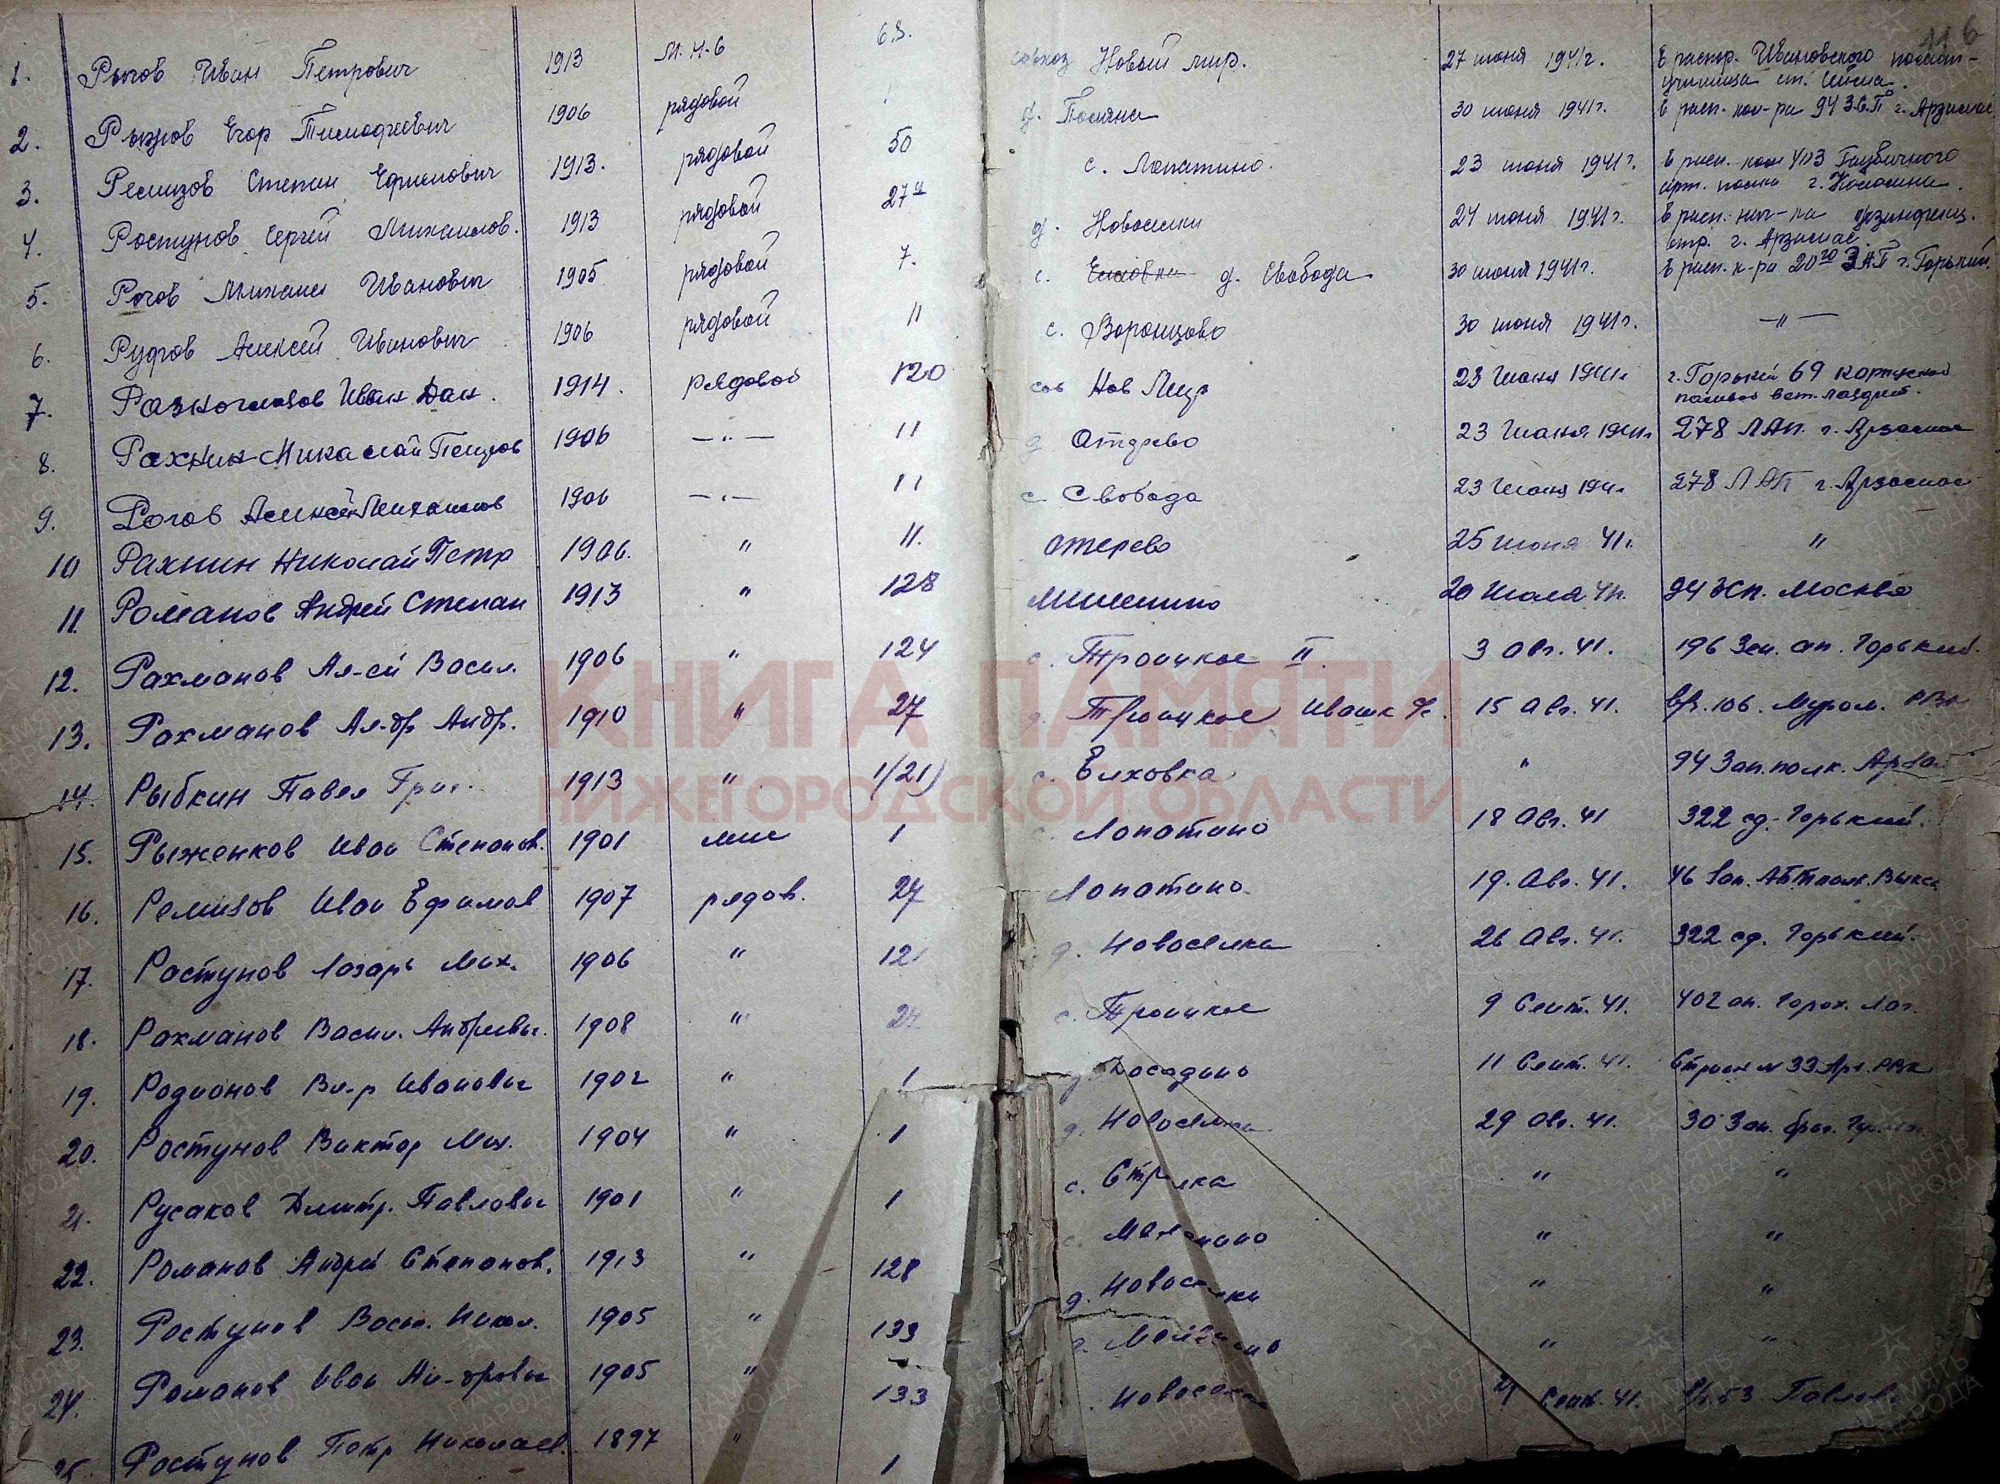 116
1. Рогов Иван Петрович 1913 М.Н.С 63. совхоз Новый мир. 27 июня 1941г. В распор. Ивановского полит-
училища
2. Егор Тимофеевич 1906 рядовой д. Поляна 30 июня 1941г. В расп. ком-ра 94 З.С.П г. Арзамас
3. Ремизов Степан Ефимович 1913. рядовой 50 с. Лопатино. 23 июня 1941г. В расп. 403 Гаубичного
арт. полка г.
4. Ростунов Сергей Михайлов. 1913 рядовой 27 д. Новоселки 24 июня 1941г. В расп.
г. Арзамас.
5. Рогов Михаил Иванович 1905 рядовой 7. с. д. Свобода 30 июня 1941г. В расп. к-ра 20 ЗАП г. Горький
6. Алексей Иванович 1906 рядовой 11 с. Воронцово 30 июня 1941г. —"—
7. Разноглазов Иван Дан. 1914. рядовой 120 сов Нов Мир 23 Июня 1941г г. Горький 69
8. Рахнин Николай Петров 1906 —"— 11 д Отдрево 23 Июня 1941г 278 ЛАП. г. Арзамас
9. Рогов Алексей Михайлов 1906 —"— 11 с. Свобода 23 Июня 1941г 278 ЛАП г. Арзамас
10 Рахнин Николай Петр 1906. " 11. отерево 25 июня 41г. "
11. Романов Андрей Степан 1913 " 128 20 Июля 41г. 94 Москва
12. Рахманов Ал-ей Васил. 1906 " 124 с. Троицкое II. 3 Авг. 41. 196 Зен. ап. Горький.
13. Рахманов Ал-др Андр. 1910 " 27 Троицкое 15 Авг. 41. 106. Муром. РВК
14. Рыбкин Павел Григ. 1913 " 1/21) с. Елховка " 94 Зап. полк. Арзам.
15. Рыженков Иван Степанов. 1901 млс 1 с. Лопатино 18 Авг. 41 322 сд. Горький.
16. Ремизов Иван Ефимов 1907 рядов. 27 Лопатино. 19. Авг. 41. 46 Зап. Выкса
17. Ростунов Лазарь Мих. 1906 " 121 д. Новоселки 26 Авг. 41. 322 сд. Горький.
18. Рахманов Васил. Андреевич. 1908 " 27 с. Троицкое 9 Сент. 41. 402 ап. Горох. Лаг.
19. Родионов Вл-р Иванович 1902 " 1 д. Досадино 11 Сент. 41. РВК
20. Ростунов Виктор Мих. 1904 " 1 д. Новоселки 29 Авг. 41. 30 Зап. бриг.
21. Русаков Дмитр. Павлович 1901 " 1 с. Стрелка " "
22. Романов Андрей Степанов. 1913 " 128 с. " "
23. Ростунов Васил. Никол. 1905 " 133 д. Новоселки " "
24. Романов Иван Ал-дрович 1905 " 133 " "
25. Ростунов Петр Николаев. 1897 " 1 Новоселки Сент. 41. Павлов.
КНИГА ПАМЯТИ
НИЖЕГОРОДСКОЙ ОБЛАСТИ
ПАМЯТЬ
НАРОДА